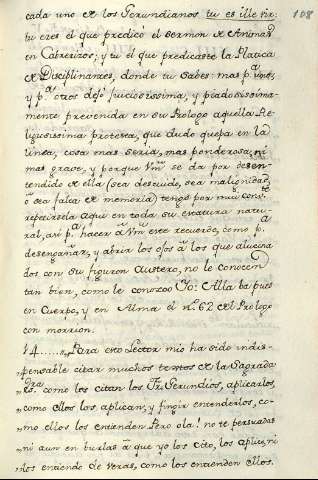 108
cada uno de los Gerundianos tu es ille vir:
tu eres el que predicó el sermon de Animas
en Cabrerizos; y tu él que predicaste la Platica
de Disciplinantes, donde tu sabes: mas pa. unos,
y pa. otros dejó juiciosissima, y piadosissima-
mente prevenida en su Prologo aquella Re-
ligiosissima protesta, que dudo quepa en la
linea, cosa mas seria, mas ponderosa, ni
mas grave, y porque Vm. se da por desen-
tendido de ella (sea descuido, sea malignidad,
ò sea falta de memoria) tengo por mui
repetirsela aqui en toda su estatura natu-
ral, asi pa. hacer à Vm. este recuerdo, como pa.
desengañar, y abrir los ojos à los que alucina-
dos con su figuron austero, no le conocen
tan bien, como le conozco Yo: Alla ba pues
en Cuerpo, y en Alma el n.º 62 del Prologo
con morrion.
14 Para esto Lector mio ha sido indis-
„pensable citar muchos textos de la Sagrada
como los citan los Fr. Gerundios, aplicarlos,
„como ellos los aplican; y fingir entenderlos, co-
„mo ellos los entienden. Pero ola! no te persuadas
„ni aun en burlas à que yo los cito, los aplico, ni
„los entiendo de veras, como los entienden ellos.